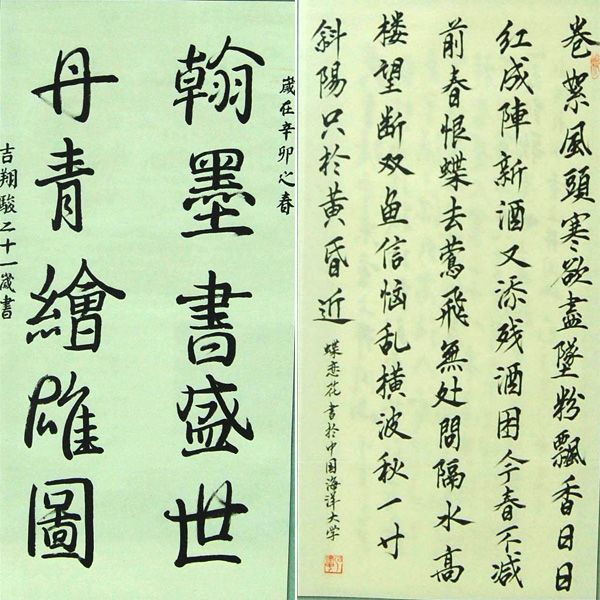 歲在辛卯之春
翰墨書盛世
丹青繪雄圖
吉翔駿二十一歲書
卷絮風頭寒欲盡墜粉飄香日日
红成陣新酒又添残酒困今春不减
前春恨蝶去莺飛無处問隔水高
楼望断双鱼信恼乱横波秋一寸
斜陽只於黄昏近
蝶恋花書於中国海洋大学